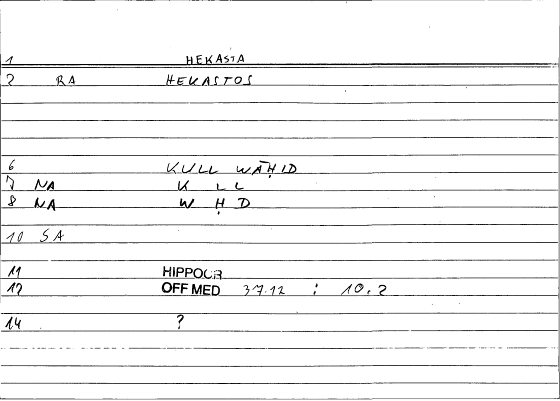 1 HEKASTA
2 RA HEKASTOS
6 KULL WĀḤID
7 NA K L L
8 NA W Ḥ D
10 SA
11 HIPPOCR
12 OFF MED 37.12 : 10.2
14 ?